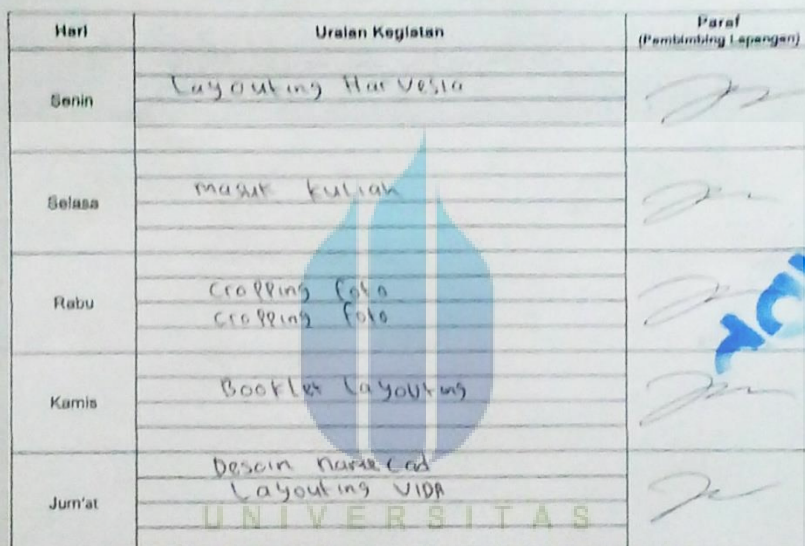 Hari Uraian Kegiatan Paraf
(Pembimbing Lapangan)
Senin Layouting Harvesia
Selasa masuk kuliah
Rabu cropping foto
cropping foto
Kamis Booklet Layouting
Jum'at Desain name Crd
Layouting VIDA
UNIVERSITAS